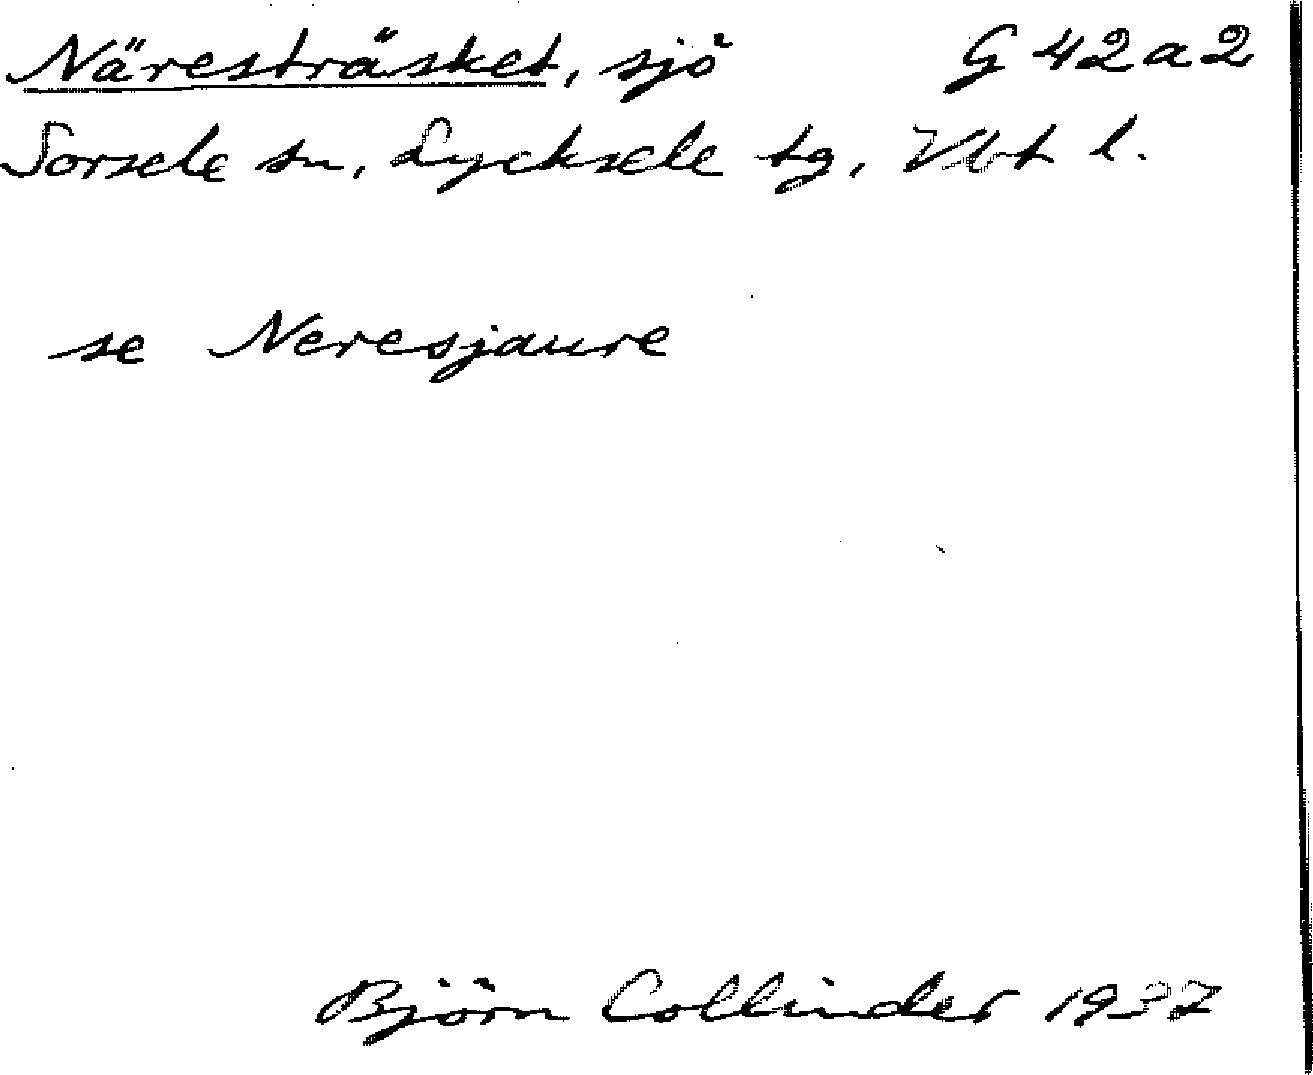 Näresträsket, sjö G 42 a 2
Sorsele sn, Lycksele tg, Vbt l.
se Neresjaure
Björn Collinder 1937